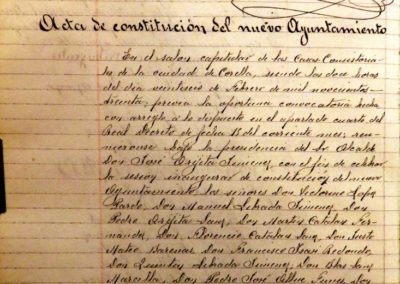 Acta de constitución del nuevo Ayuntamiento
En el salón capitular de las Casas Consistoria-
les de la ciudad de Corella, siendo las doce horas
del día veintiseis de Febrero de mil novecientos
treinta; previa la oportuna convocatoria hecha
con arreglo a lo dispuesto en el apartado cuarto del
Real Decreto de fecha 15 del corriente mes; reu-
nieronse bajo la presidencia del Sr. Alcalde
Don José Jimenez con el fin de celebrar
la sesión inaugural de constitución del nuevo
Ayuntamiento los señores Don Victorino
Don Manuel Jimenez, Don
Pedro Sanz, Don Martín Catalán Fer-
nández, Don Florencio Catalán Sanz, Don Justo
Mateo Don Francisco Redondo,
Don Quintín Jimenez, Don Blas Sanz
Don Pedro José Don